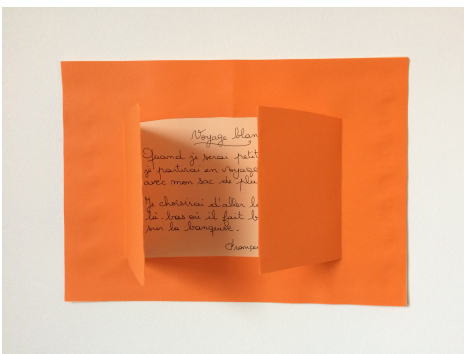 Voyage blan
Quand je serai petit
je partirai en voyage
avec mon sac de pla
Je choisirai d'aller
là-bas où il fait b
sur la banquise.